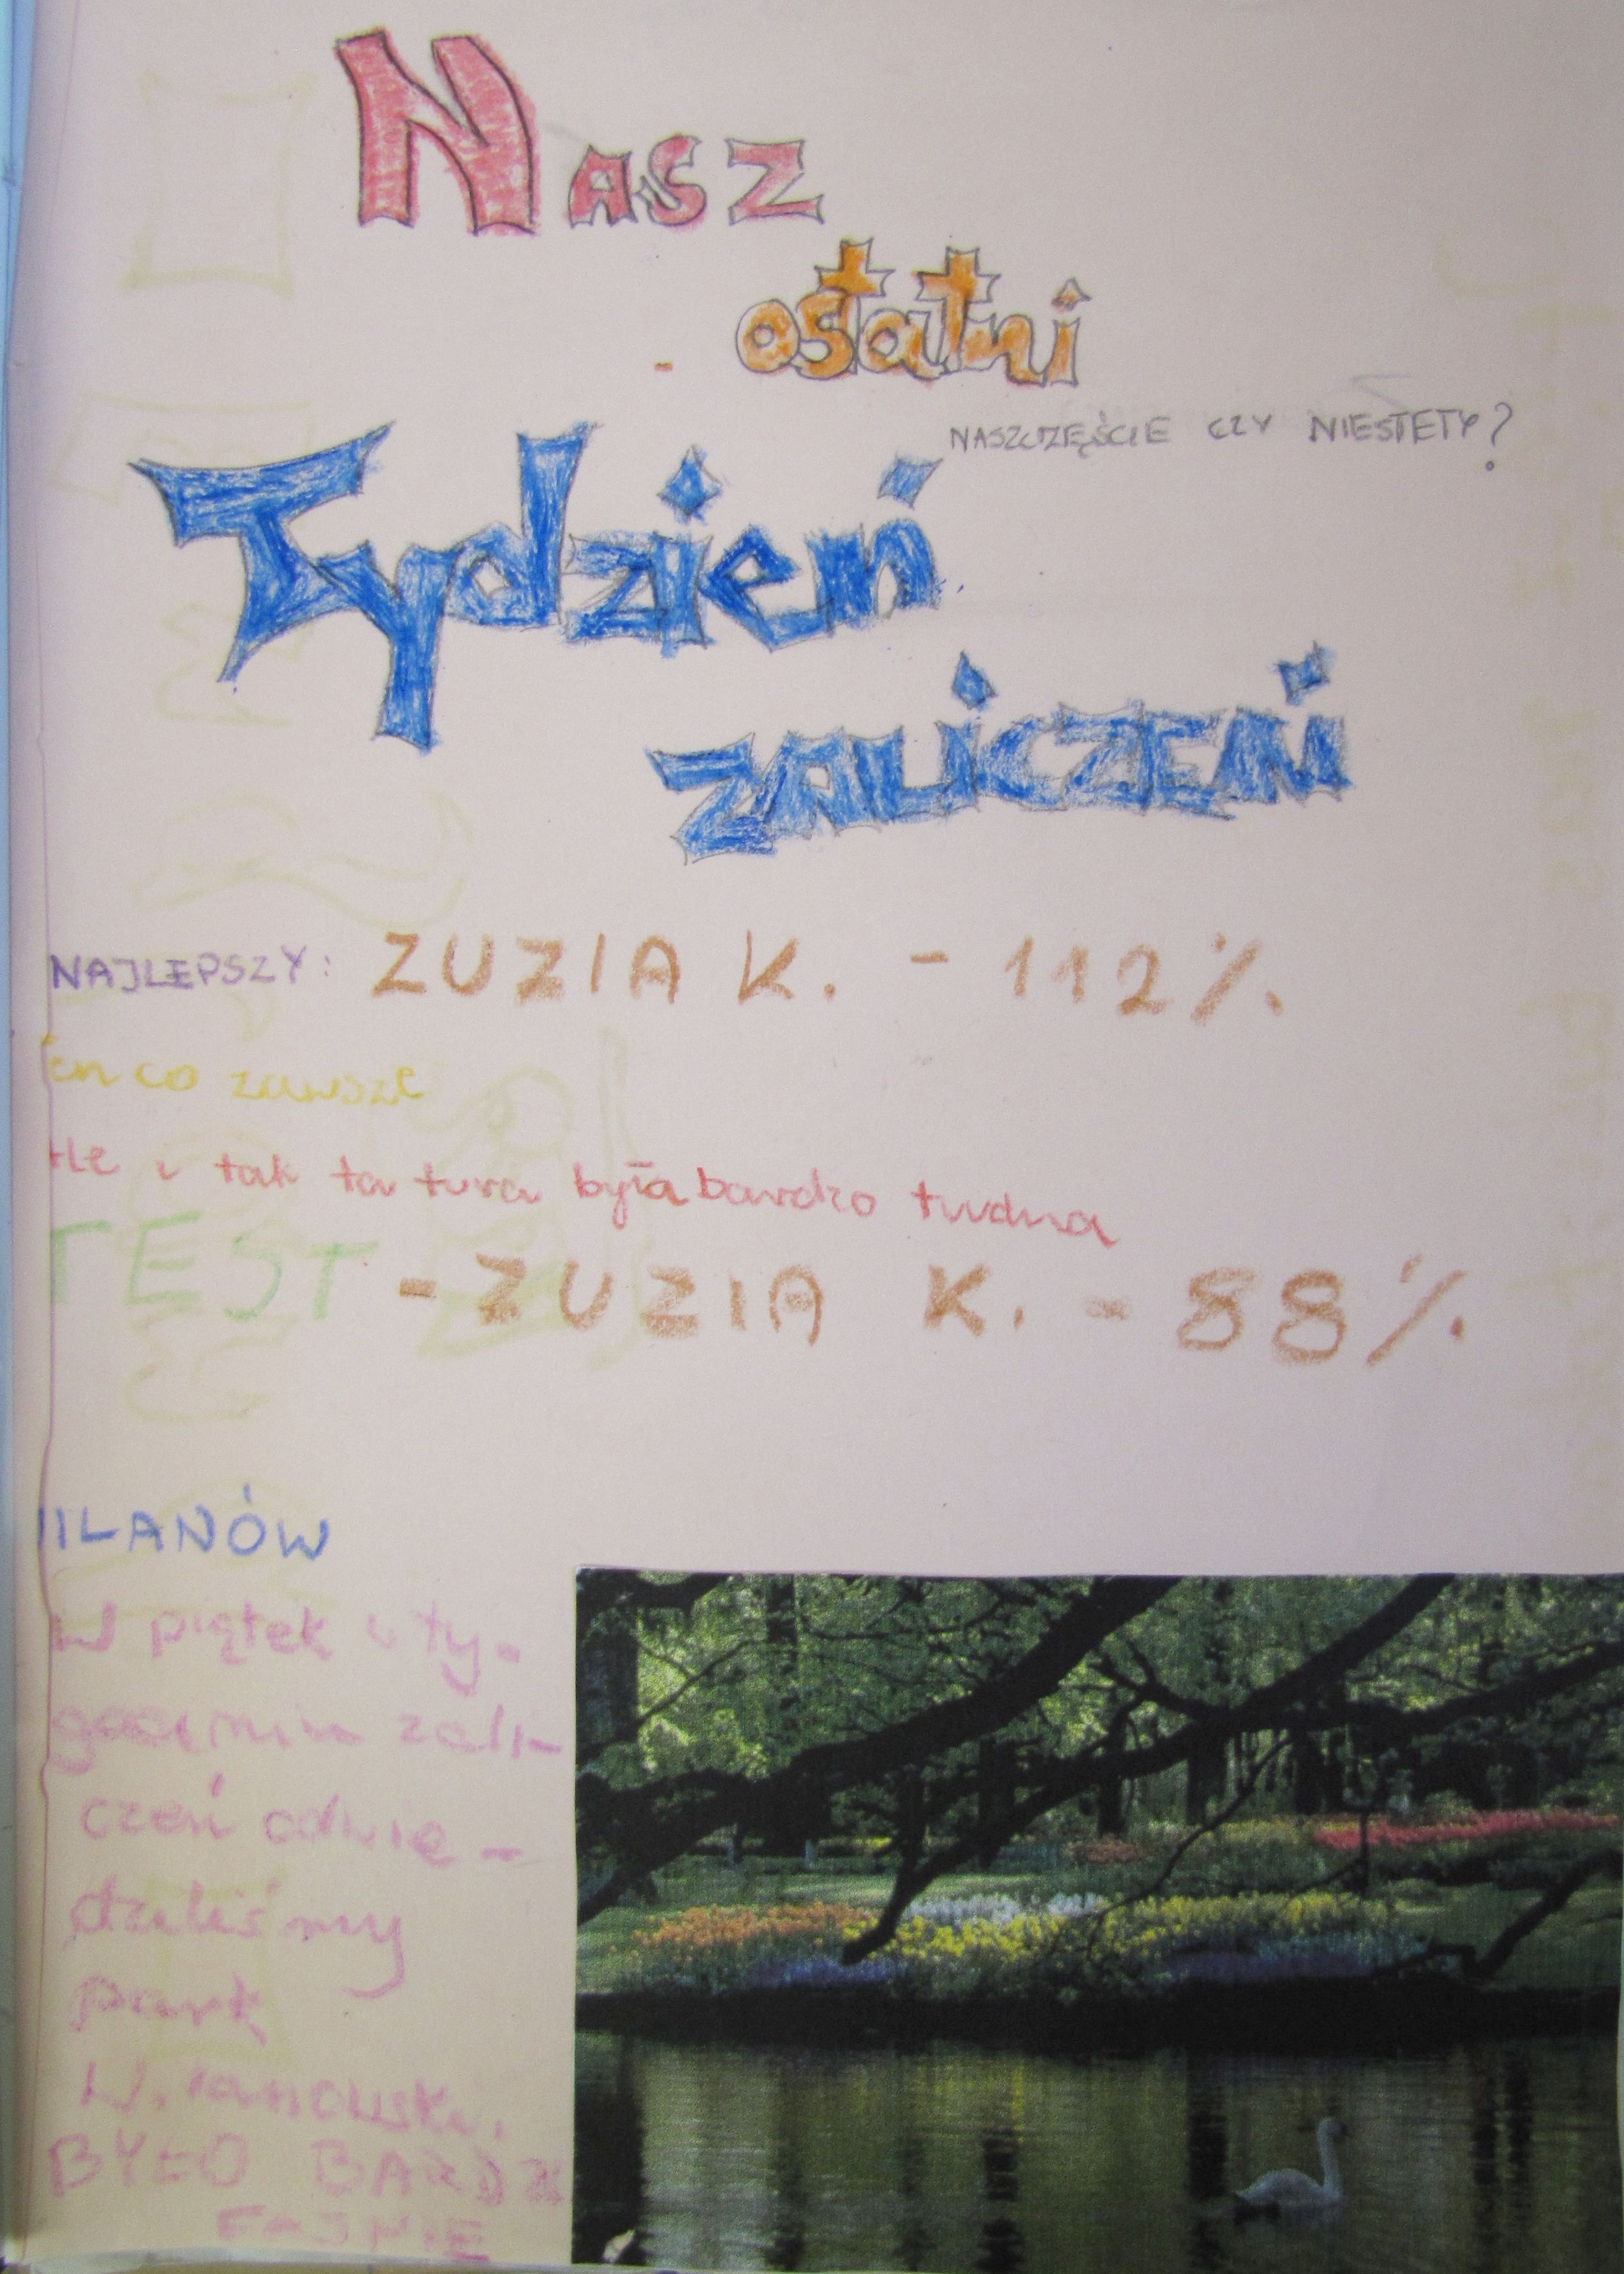 Nasz
- ostatni
NASZCZĘŚCIE CZY NIESTETY?
Tydzień
zaliczeń
NAJLEPSZY: ZUZIA K. - 112%
en co zawsze
i tak ta tura była bardzo trudna
TEST - ZUZIA K. - 88%
ILANÓW
W piątek
zali-
czeń odwie-
dziliśmy
park
BYŁO BARDZ
FAJNIE